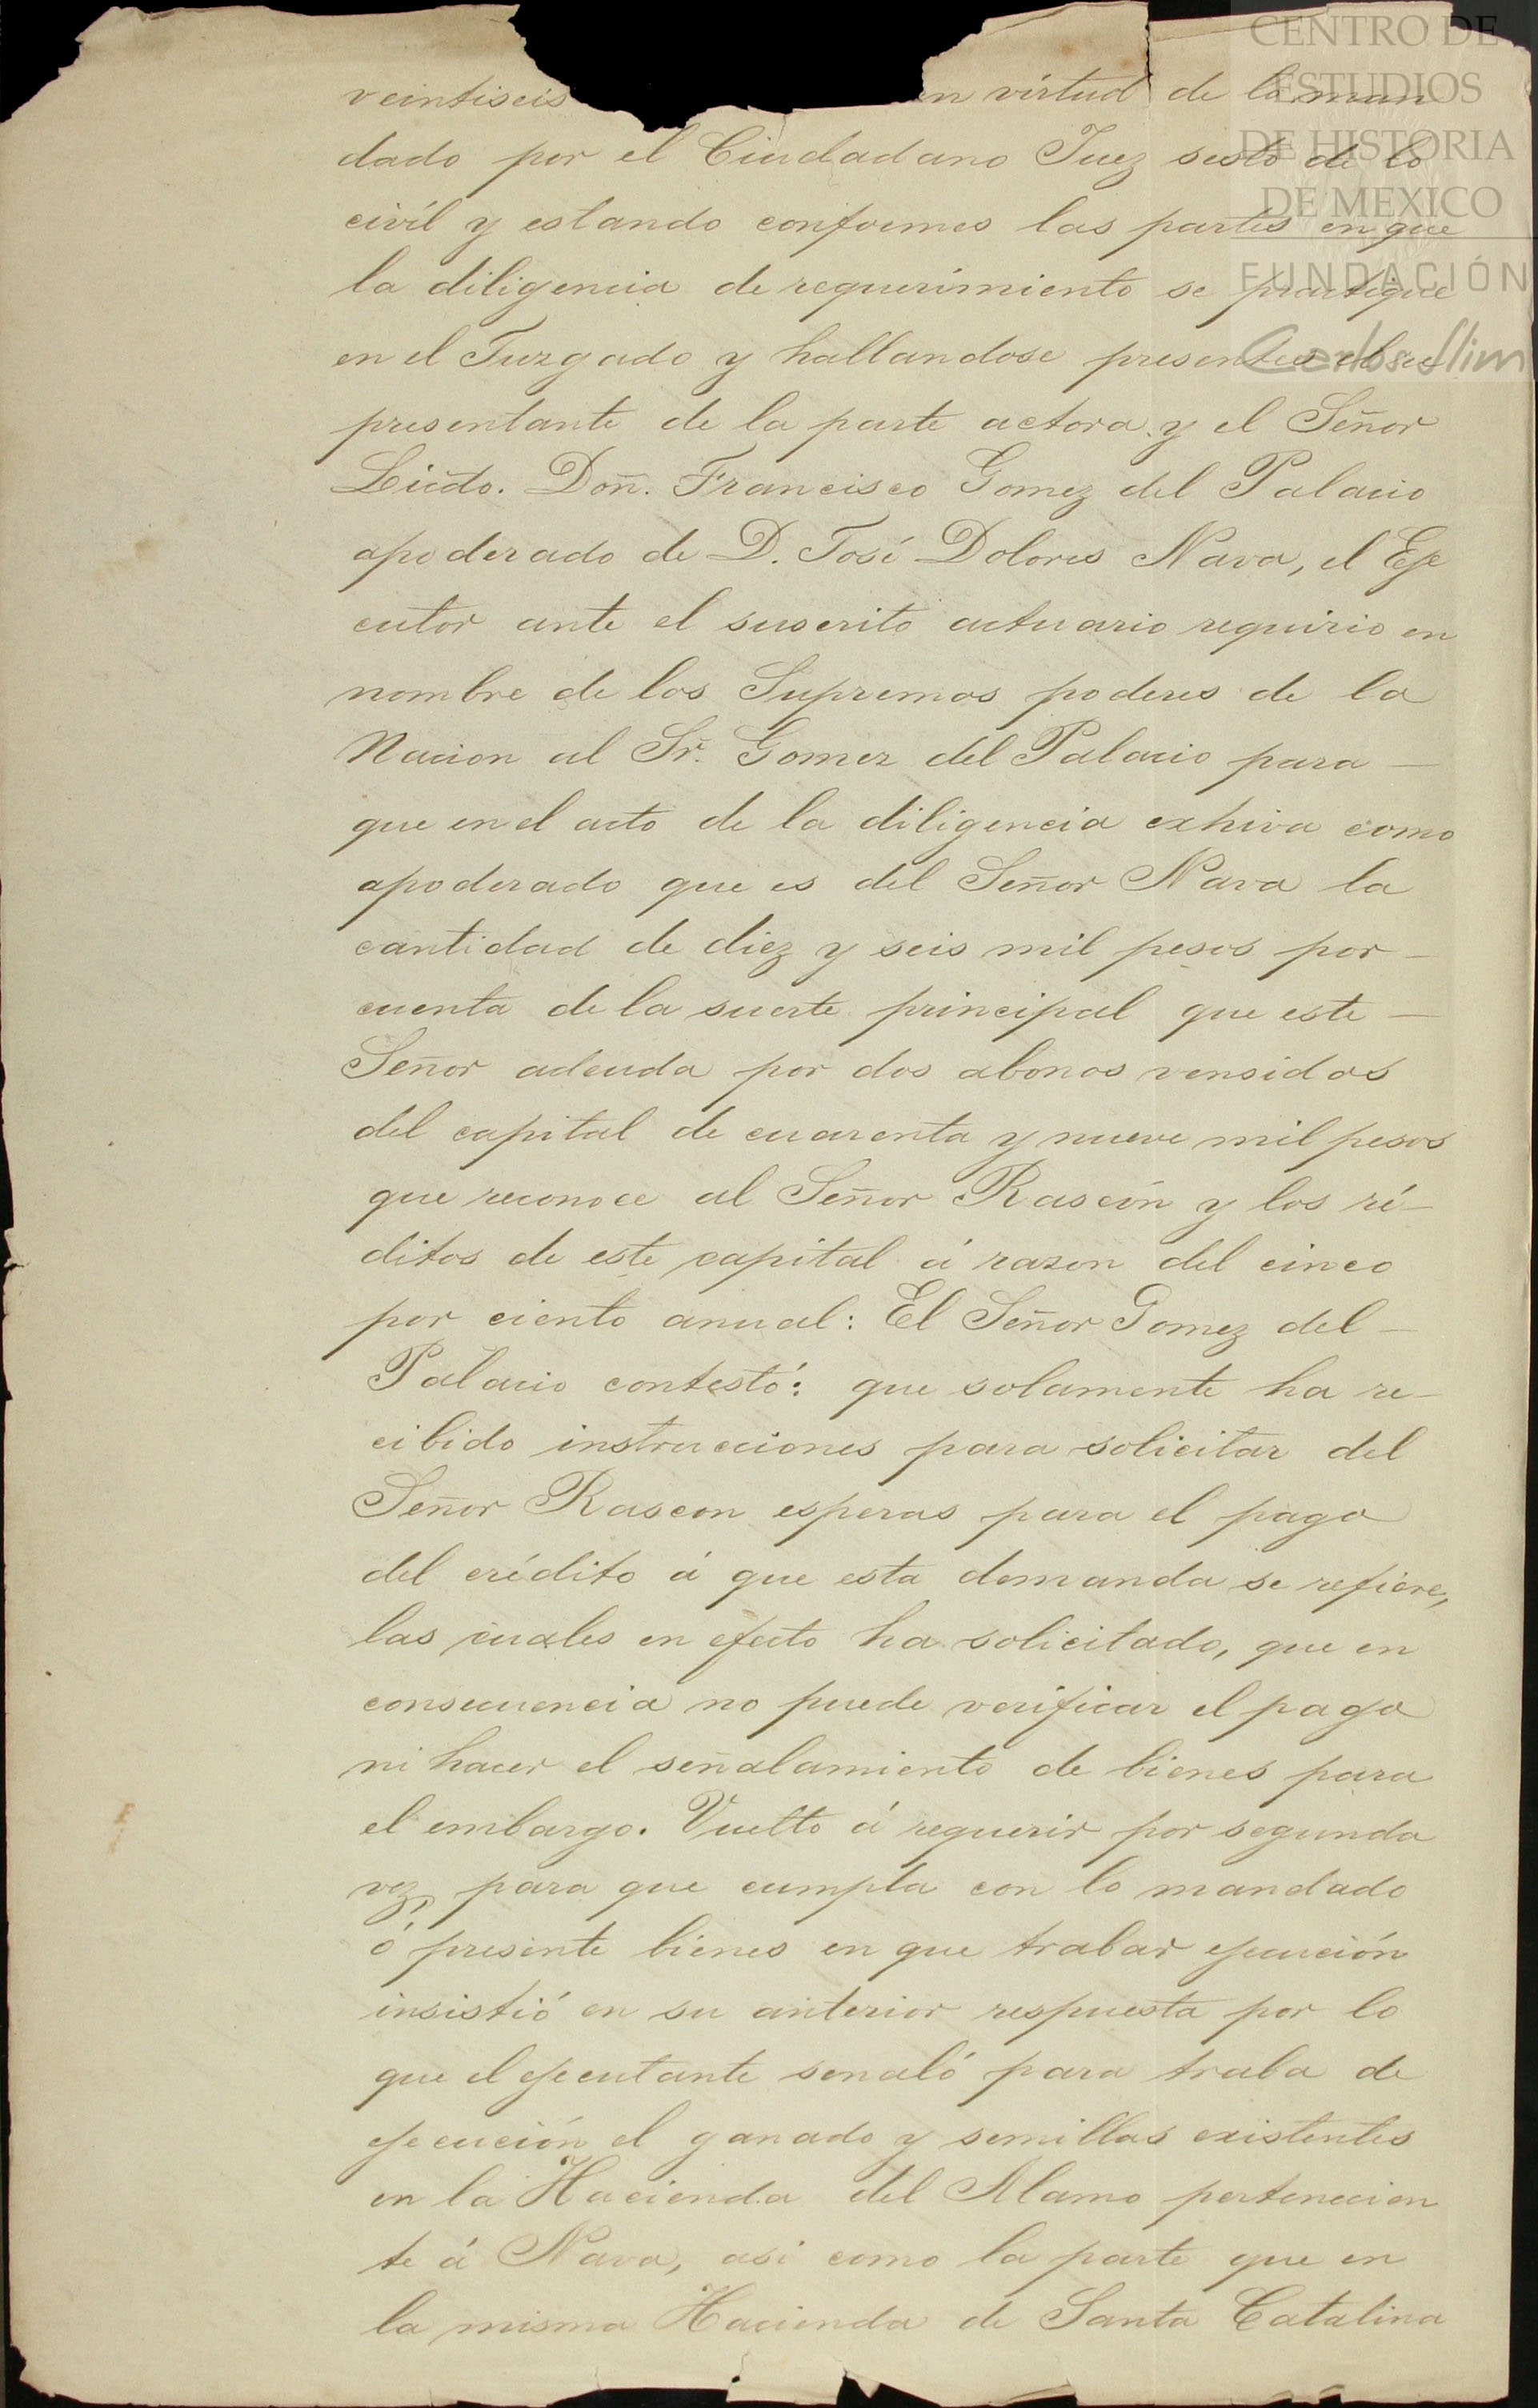 CENTRO DE
ESTUDIOS
DE HISTORIA
DE MEXICO
FUNDACIÓN
Carlos Slim
veintiseis en virtud de lo man
dado por el Ciudadano Juez sesto de lo
civíl y estando conformes las partes en que
la diligencia de requerimiento se practique
en el Juzgado y hallandose presentes el re
presentante de la parte actora y el Señor
Licdo. Doñ. Francisco Gomez del Palacio
apoderado de D. José Dolores Nava, el Eje
cutor ante el suscrito actuario requirio en
nombre de los Supremos poderes de la
Nacion al Sr. Gomez del Palacio para —
que en el acto de la diligencia exhiva como
apoderado que es del Señor Nava la
cantidad de diez y seis mil pesos por —
cuenta de la suerte principal que este —
Señor adeuda por dos abonos vensidos
del capital de cuarenta y nueve mil pesos
que reconoce al Señor Rascón y los ré—
ditos de este capital á razon del cinco
por ciento anual: El Señor Gomez del —
Palacio contestó: que solamente ha re—
cibido instrucciones para solicitar del
Señor Rascon esperas para el pago
del crédito á que esta demanda se refiere,
las cuales en efecto ha solicitado, que en
consecuencia no puede verificar el pago
ni hacer el señalamiento de bienes para
el embargo. Vuelto á requerir por segunda
vez, para que cumpla con lo mandado
ó presente bienes en que trabar ejecución
insistió en su anterior respuesta por lo
que el ejecutante senaló para traba de
ejecución el ganado y semillas existentes
en la Hacienda del Alamo pertenecien
te á Nava, asi como la parte que en
la misma Hacienda de Santa Catalina